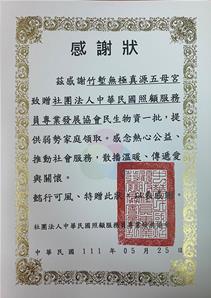 感謝狀
茲感謝竹塹無極真源五母宮
致贈社團法人中華民國照顧服務
員專業發展協會民生物資一批,提
供弱勢家庭領取。感念熱心公益、
推動社會服務,散播溫暖、傳遞愛
與關懷。
懿行可風、特贈此狀,以表感謝。
社團法人中華民國照顧服務員專業發展協會
中華民國 111 年 05 月 25 日